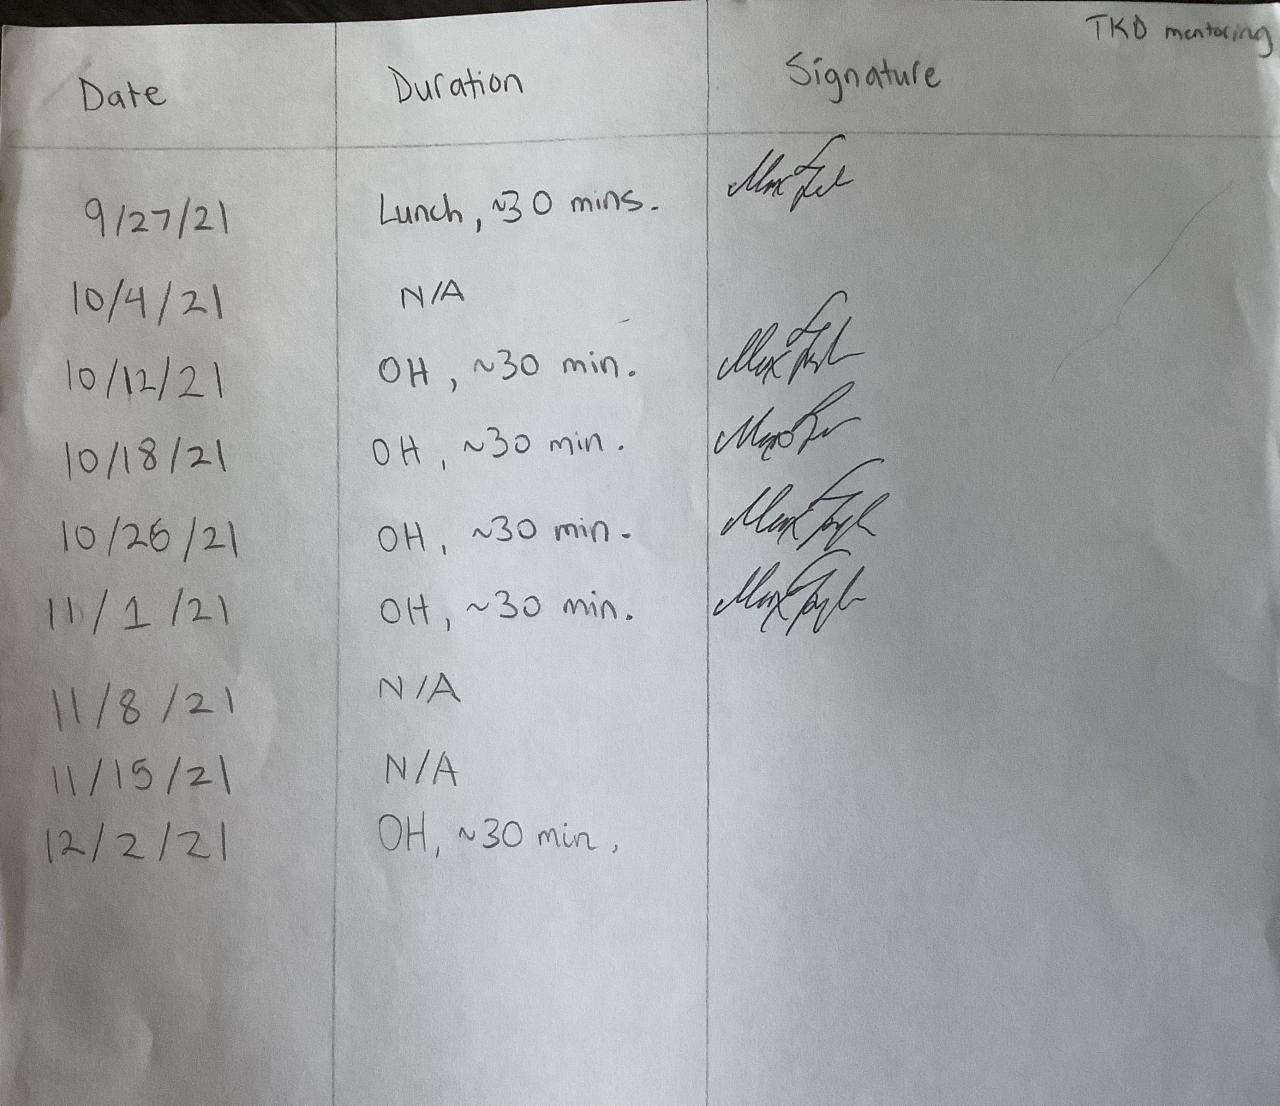 TKD mentoring
Date Duration Signature
9/27/21 Lunch, ~30 mins.
10/4/21 N/A
10/12/21 OH, ~30 min.
10/18/21 OH, ~30 min.
10/26/21 OH, ~30 min.
11/1/21 OH, ~30 min.
11/8/21 N/A
11/15/21 N/A
12/2/21 OH, ~30 min,